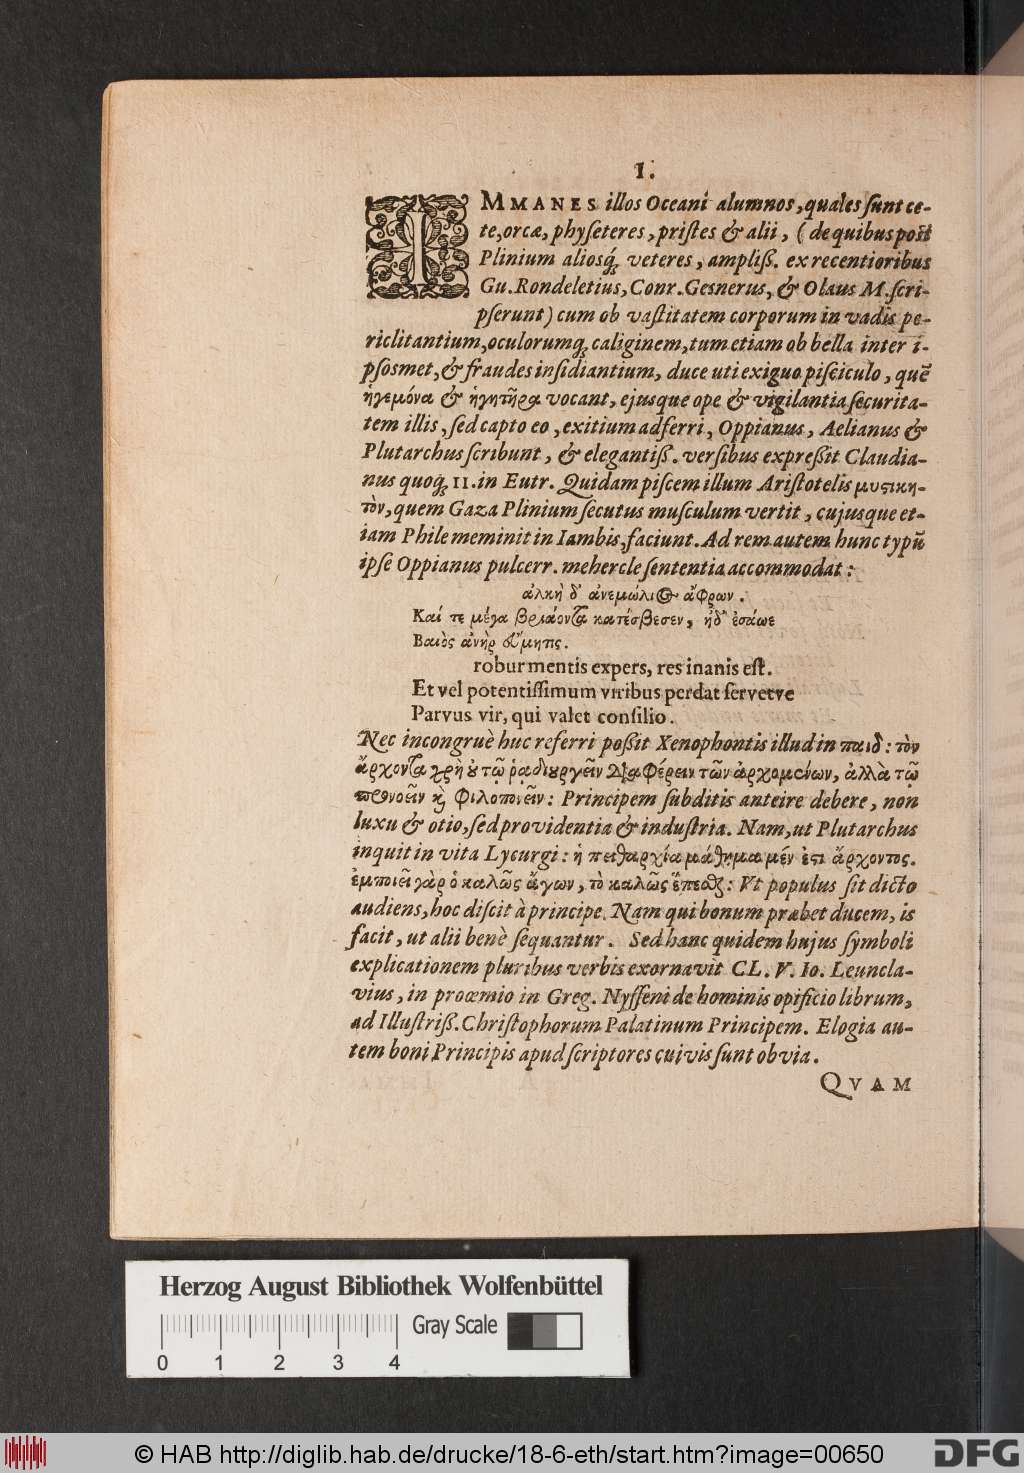 1.
IMMANES illos Oceani alumnos, quales sunt ce-
te, orcæ, physeteres, pristes & alii, (de quibus post
Plinium aliosq́; veteres, ampliß. ex recentioribus
Gu. Rondeletius, Conr. Gesnerus, & Olaus M. scri-
pserunt) cum ob vastitatem corporum in vadis pe-
riclitantium, oculorumq́; caliginem, tum etiam ob bella inter i-
psosmet, & fraudes insidiantium, duce uti exiguo pisciculo, quē
ἡγεμόνα & ἡγητῆρα vocant, ejusque ope & vigilantia securita-
tem illis, sed capto eo, exitium adferri, Oppianus, Aelianus &
Plutarchus scribunt, & elegantiß. versibus expreßit Claudia-
nus quoq́; II. in Eutr. Quidam piscem illum Aristotelis μυστικη-
τὸν, quem Gaza Plinium secutus musculum vertit, cujusque et-
iam Phile meminit in Iambis, faciunt. Ad rem autem hunc typū
ipse Oppianus pulcerr. mehercle sententia accommodat:
ἀλκὴ δ' ἀνεμώλιος ἄφρων.
Καί τε μέγα βριάοντα κατέσβεσεν, ἠδ' ἐσάωσε
Βαιὸς ἀνὴρ εὔμητις.
robur mentis expers, res inanis est.
Et vel potentissimum viribus perdat servetve
Parvus vir, qui valet consilio.
Nec incongruè huc referri poßit Xenophontis illud in παιδ: τὸν
ἄρχοντα χρὴ οὐ τῷ ῥαδιουργεῖν διαφέρειν τῶν ἀρχομένων, ἀλλὰ τῷ
προνοεῖν καὶ φιλοπονεῖν: Principem subditis anteire debere, non
luxu & otio, sed providentia & industria. Nam, ut Plutarchus
inquit in vita Lycurgi: ἡ πειθαρχία μάθημα μέν ἐστι ἄρχοντος.
ἐμποιεῖ γὰρ ὁ καλῶς ἄγων, τὸ καλῶς ἕπεσθαι: Vt populus sit dicto
audiens, hoc discit à principe. Nam qui bonum præbet ducem, is
facit, ut alii benè sequantur. Sed hanc quidem hujus symboli
explicationem pluribus verbis exornavit CL. V. Io. Leuncla-
vius, in proœmio in Greg. Nysseni de hominis opificio librum,
ad Illustriß. Christophorum Palatinum Principem. Elogia au-
tem boni Principis apud scriptores cuivis sunt obvia.
QVAM
Herzog August Bibliothek Wolfenbüttel
Gray Scale
0 1 2 3 4
© HAB http://diglib.hab.de/drucke/18-6-eth/start.htm?image=00650
DFG